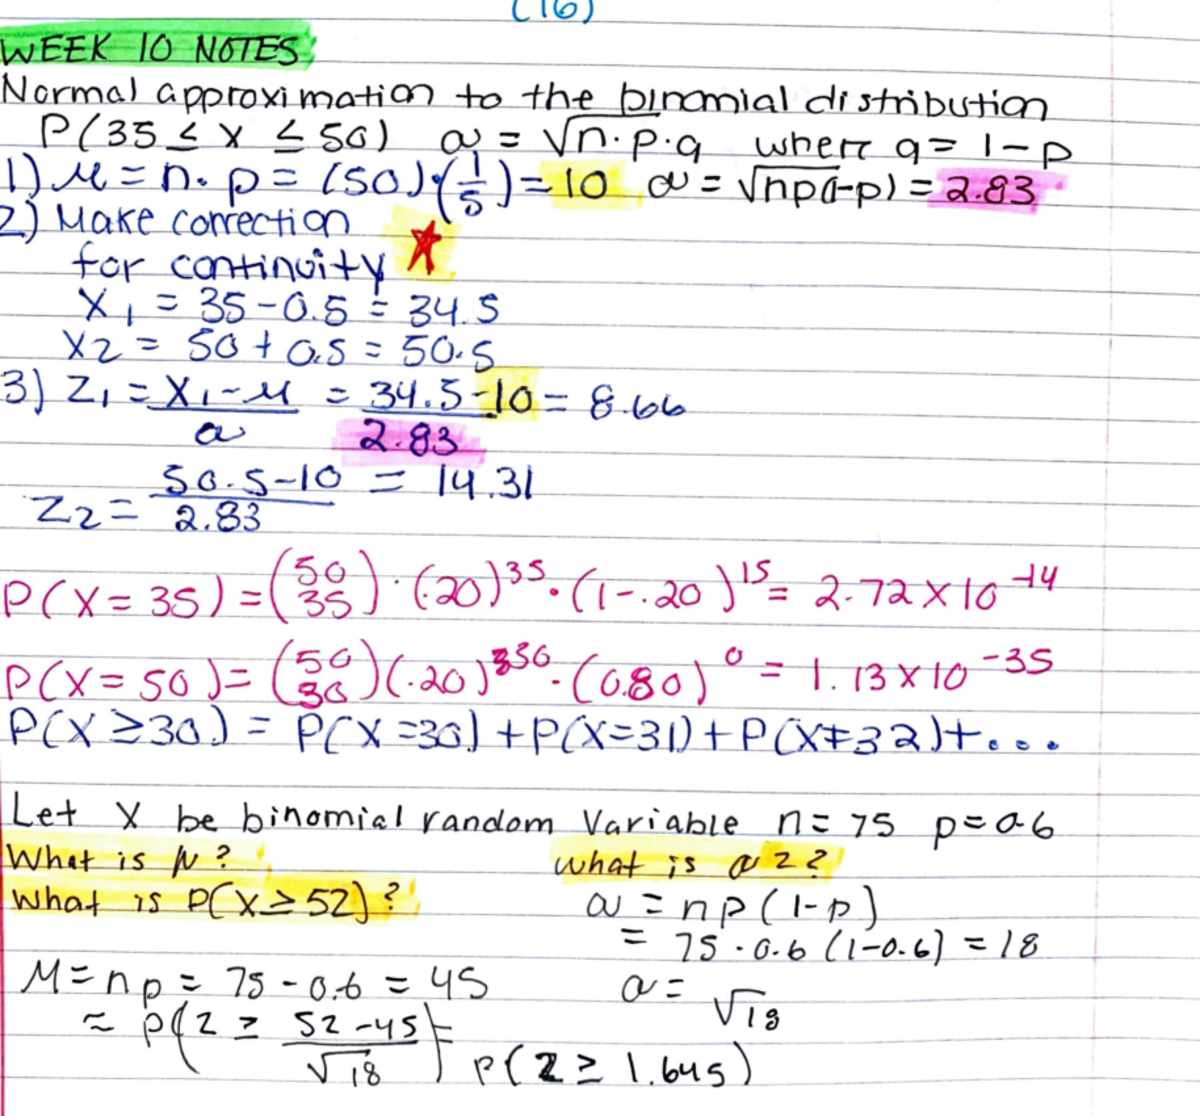 (16)
WEEK 10 NOTES
Normal approximation to the binomial distribution
P(35 ≤ x ≤ 50) σ = √n·p·q where q = 1-p
1) μ = n·p = (50)·(1/5) = 10 σ = √np(1-p) = 2.83
2) Make correction
for continuity ★
X₁ = 35 - 0.5 = 34.5
X2 = 50 + 0.5 = 50.5
3) Z₁ = X₁-μ/σ = 34.5-10/2.83 = 8.66
Z2 = 50.5-10/2.83 = 14.31
P(X=35) = (50 35)·(.20)³⁵·(1-.20)¹⁵ = 2.72 x 10⁻¹⁴
P(X=50) = (50 30)(.20)⁵⁰·(0.80)⁰ = 1.13 x 10⁻³⁵
P(X≥30) = P(X=30) + P(X=31) + P(X=32) + ...
Let X be binomial random Variable n = 75 p = 0.6
What is μ? what is σ2?
What is P(X≥52)? σ = np(1-p)
= 75·0.6(1-0.6) = 18
M = np = 75 - 0.6 = 45 σ = √18
≈ P(Z ≥ 52-45/√18) = P(Z ≥ 1.645)